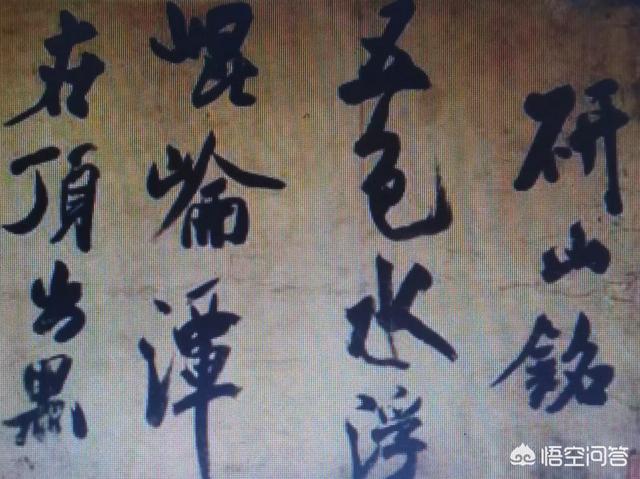 研山銘
五色水浮
崐崘潭
在頂出黑
悟空问答